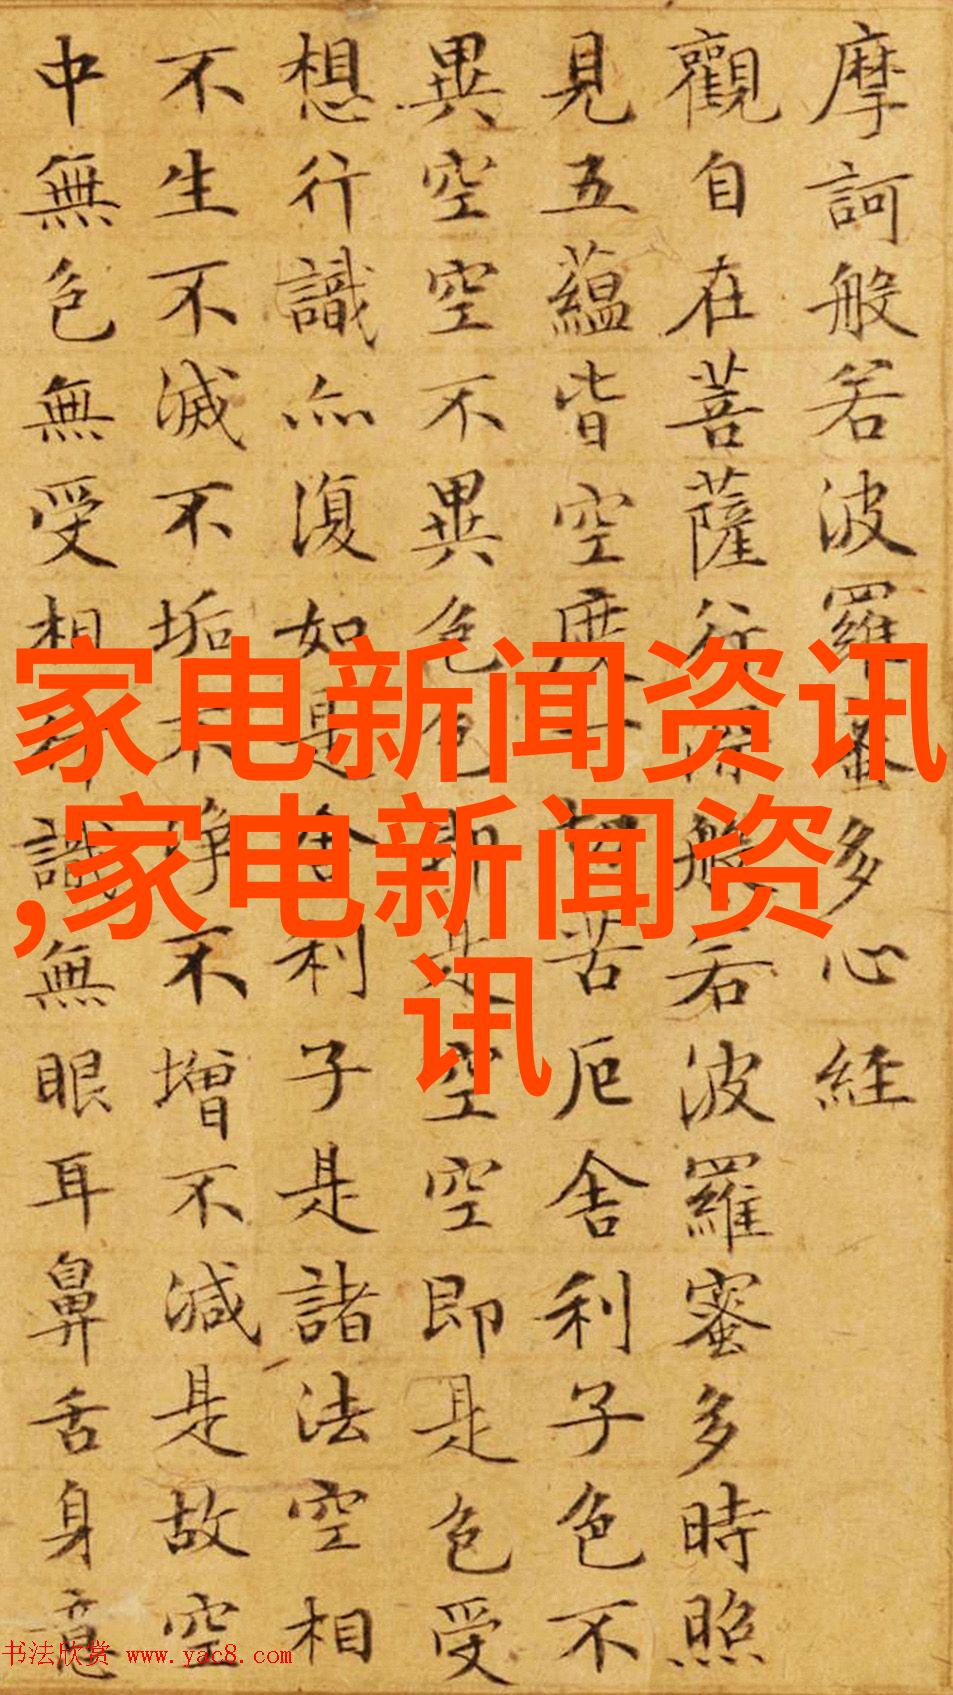 摩訶般若波羅蜜多心經
觀自在菩薩行深般若波羅蜜多時照
見五蘊皆空度一切苦厄舍利子色不
異空空不異色色即是空空即是色受
想行識亦復如是舍利子是諸法空相
不生不滅不垢不淨不增不減是故空
中無色無受想行識無眼耳鼻舌身意
家电新闻资讯
,家电新闻资
讯
书法欣赏 www.yac8.com